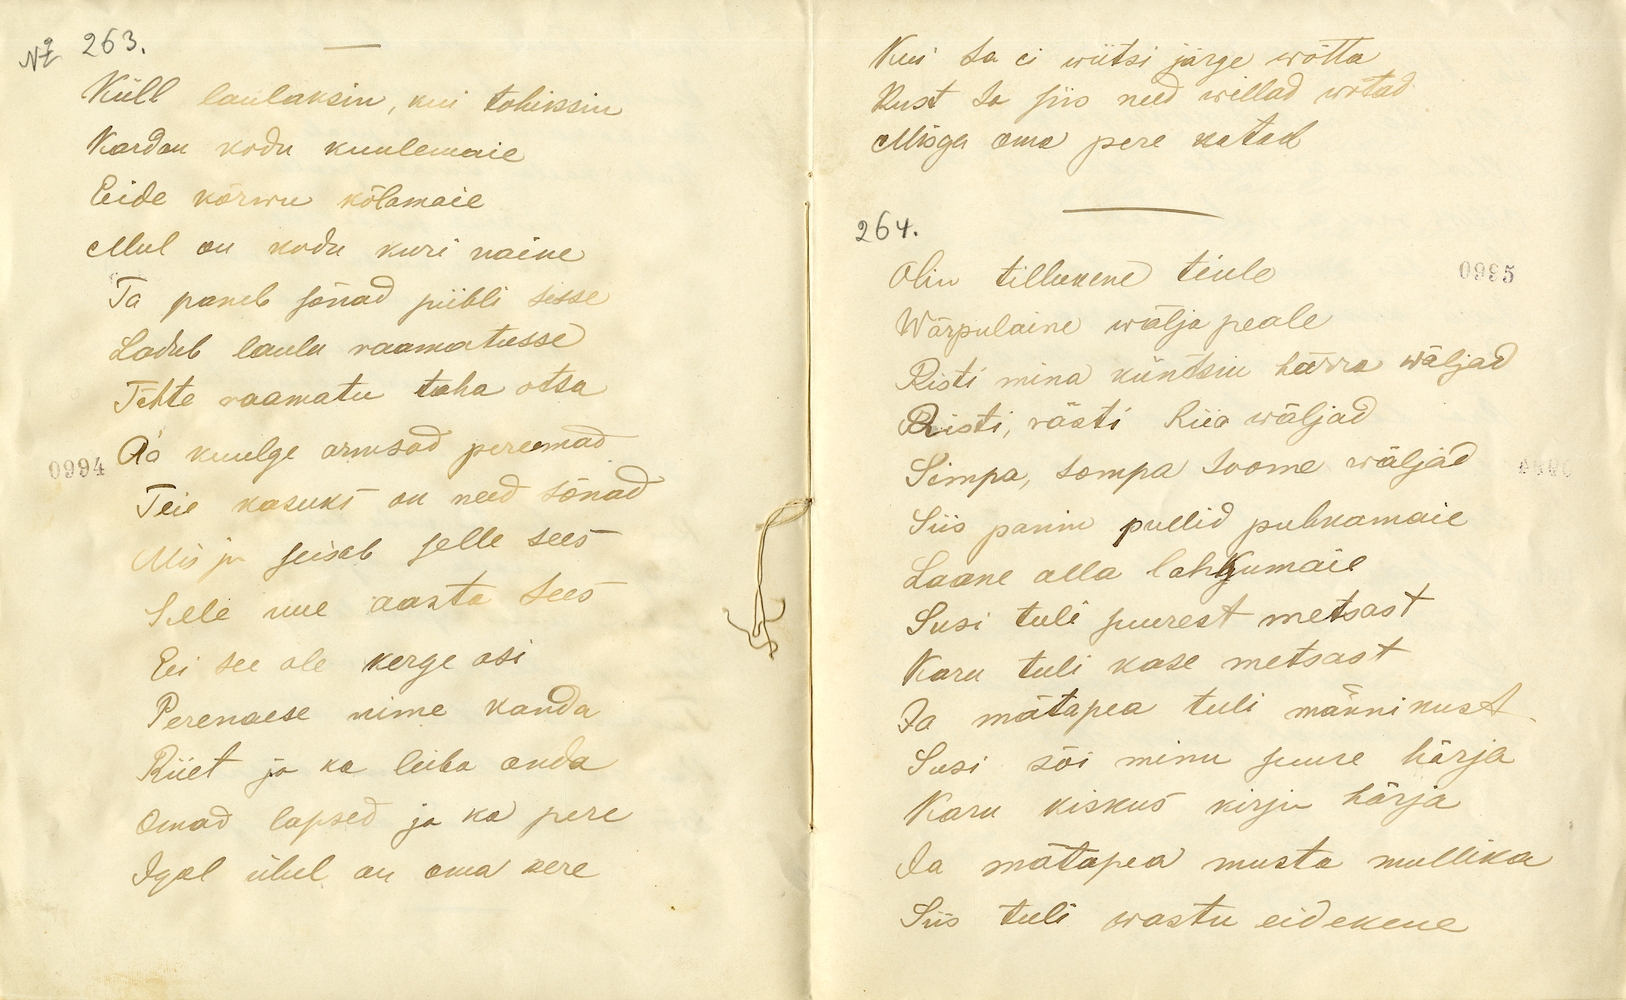 № 263.
Küll laulaksin, kui tohiksin
Kardan kodu kuulemaie
Eide kõrwu kõlamaie
Mul on kodu kuri naine
Ta paneb sõnad piibli sisse
Ladub laulu raamatusse
Tähte raamatu taha otsa
Ao kuulge armsad peremad
0994
Teie kasuks on need sõnad
Mis ju seisab selle sees
Selle uue aasta sees
Ei see ole kerge asi
Perenaese nime kanda
Riiet ja ka leiba anda
Omad lapsed ja ka pere
Igal ühel on oma kere
Kui sa ei wiitsi järge wõtta
Kust sa siis need willad wõtad
Misga oma pere katad
264.
Olin tillukene tiule
0995
Wärpulaine wälja peale
Risti mina kündsin härra wäljad
Risti, rästi Riia wäljad
Simpa, sompa Soome wäljad
Siis panin pullid puhkamaie
Laane alla lahkumaie
Susi tuli suurest metsast
Karu tuli kase metsast
Ja mätapea tuli männikust
Susi sõi minu suure härja
Karu kiskus kirju härja
Ja mätapea musta mullika
Siis tuli wastu eidekene